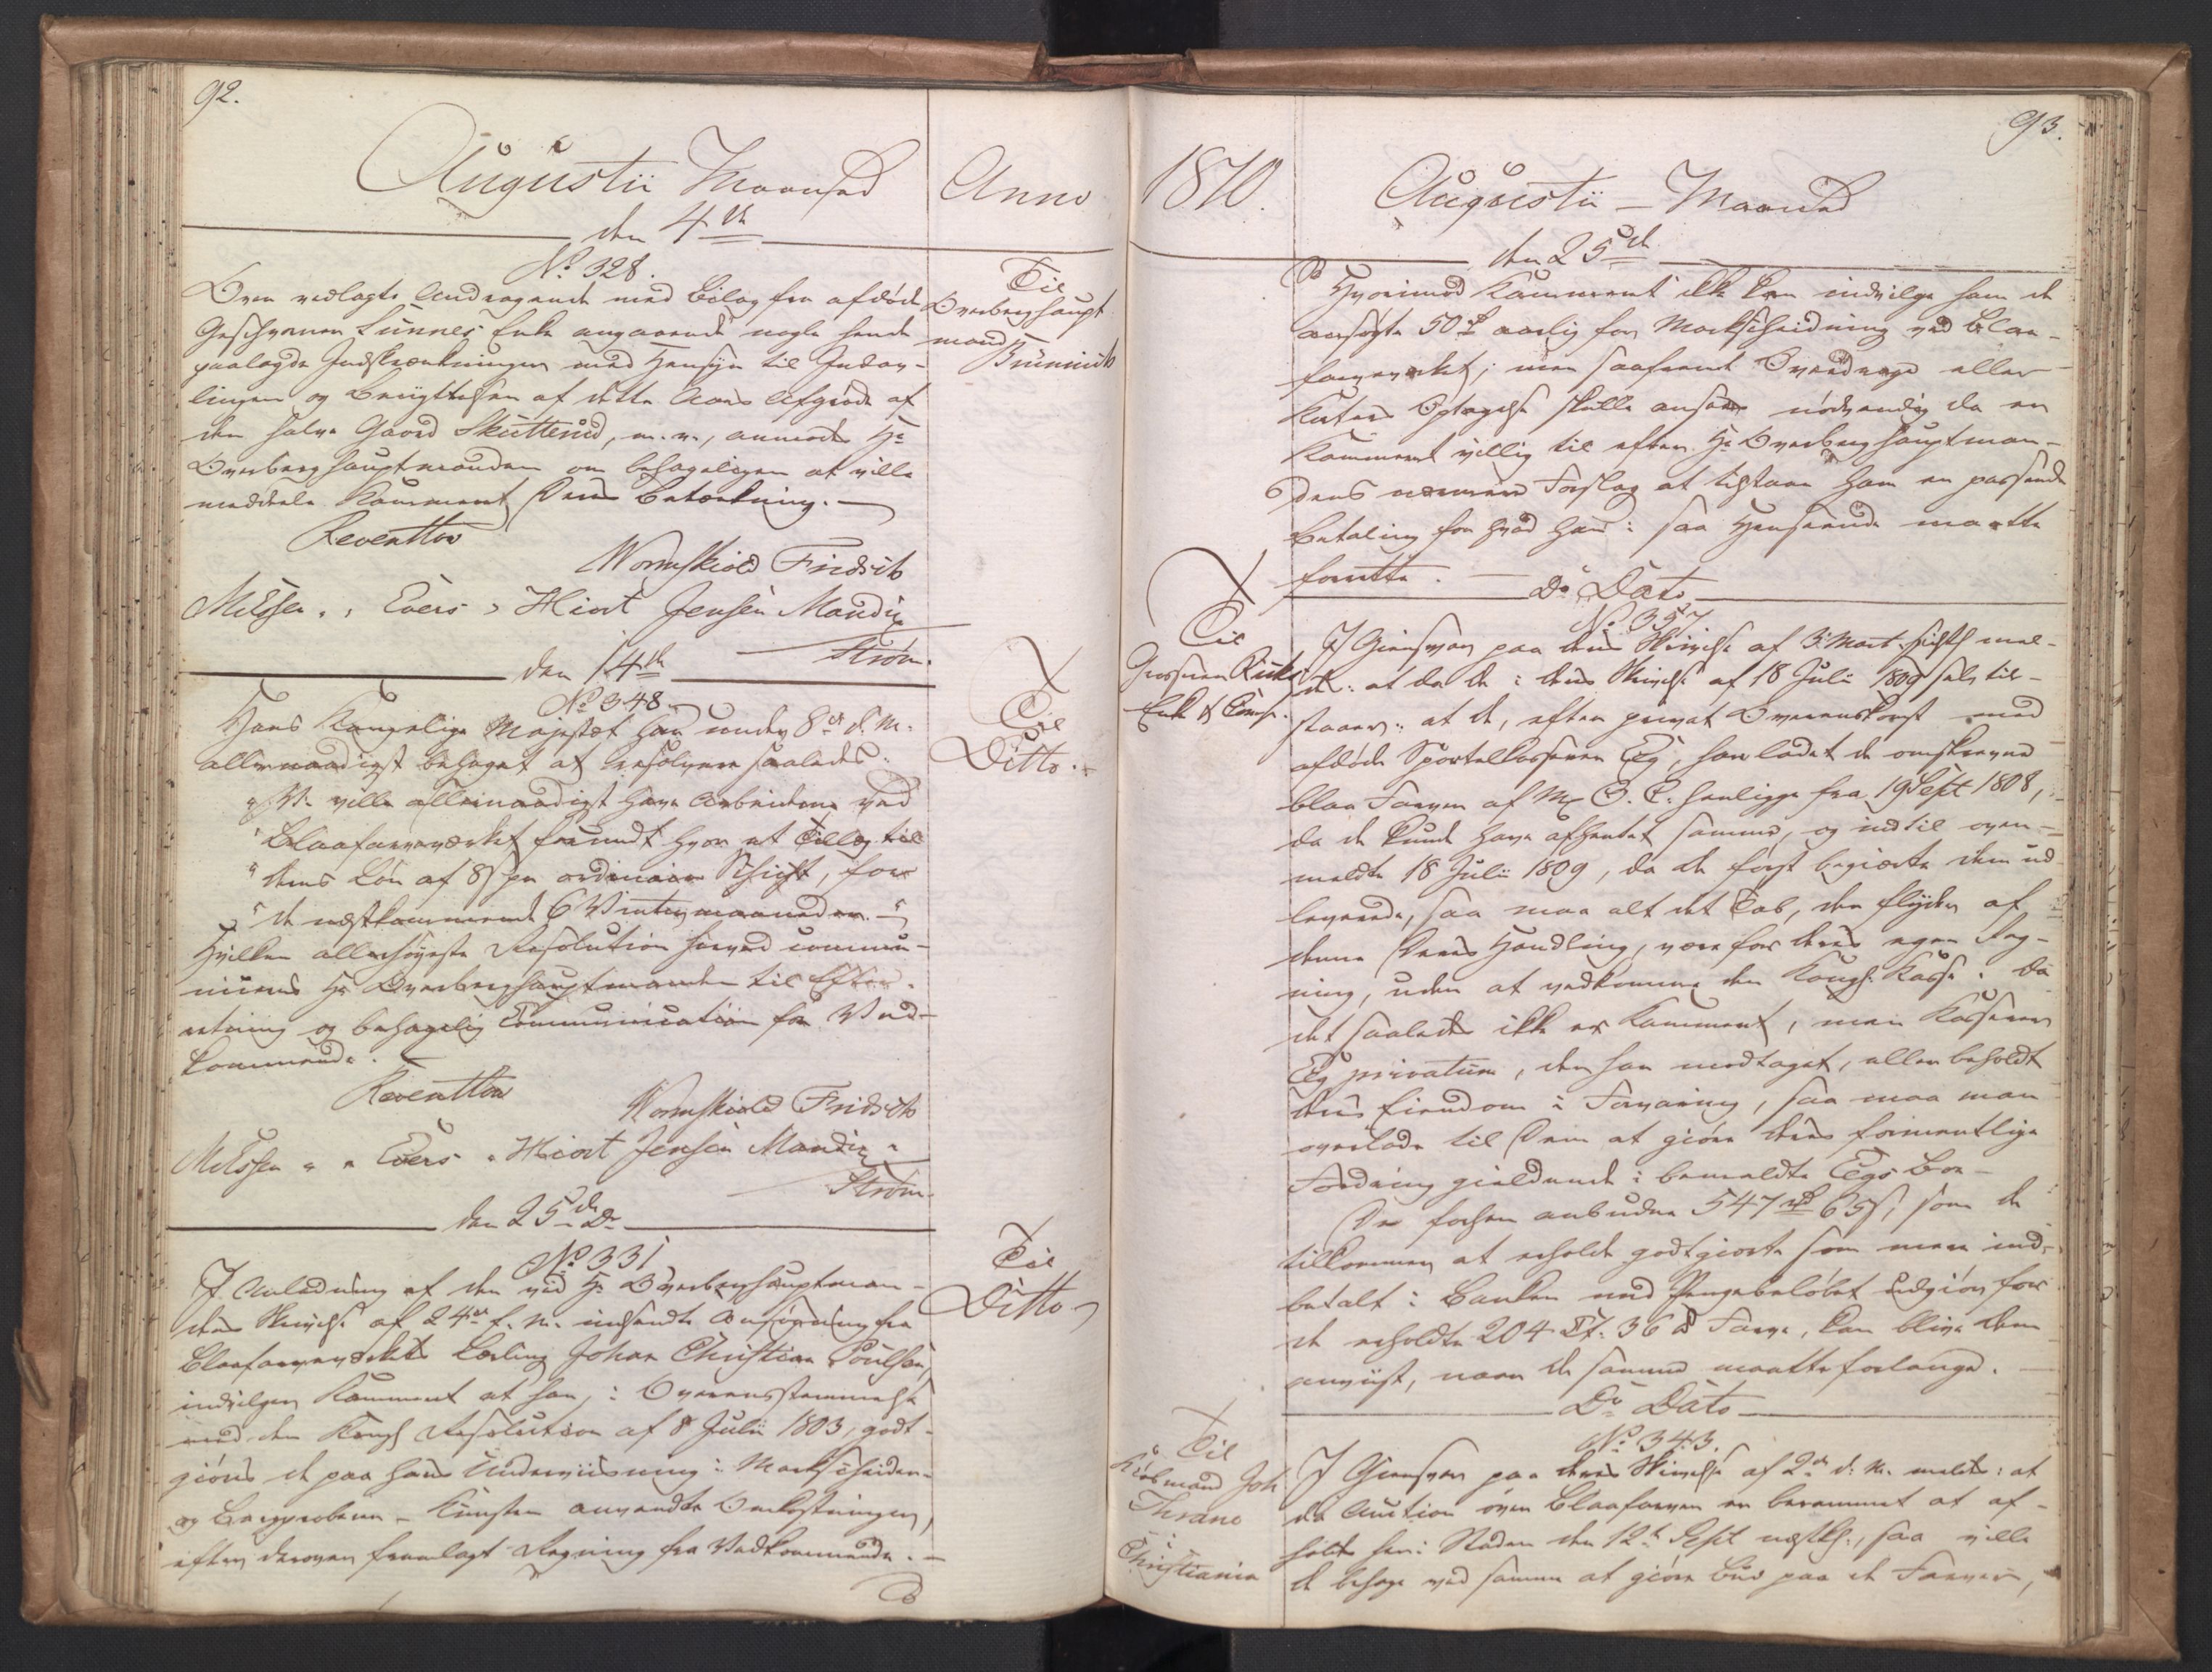 92.
Augustii Maaned
Anno
den 4de
No 328.
Til
Overberghaupt
mand
Brünnich
Over vedlagte Andragende med Bilag fra afdøde
Geschvorner Lunnes Enke angaaende nogle hende
paalagde Indskrænkninger med Hensyn til Indav-
lingen og Benyttelsen af dette Aars Afgrøde af
den halve Gaard Skutterud, m.v., anmodes Hr
Overberghauptmanden om behageligen at ville
meddele Kammeret Deres Betænkning.
Reventlow
Wormskiold Fridsch
Meÿer. Evers Hiort Jensen Mandix
Strøm.
den 14de
No 348
Til
Ditto.
Hans Kongelige Majestæt har under 8de d. M.
allernaadigst behaget at resolvere saaledes:
"Vi ville allernaadigst have Arbeiderne ved
"Blaafarveværket forundt hver et Tillæg til
"deres Løn af 8 s pr ordinair Schicht, for
"de næstkommende 6 Vintermaaneder."
Hvilken allerhøyeste Resolution herved commu-
niceres Hr Overberghauptmanden til Efter-
retning og behagelig Communication for Ved-
kommende.
Reventlow
Wormskiold Fridsch
Meÿer Evers Hiort Jensen Mandix
Strøm.
den 25de Do
No 331
Til
Ditto
I Anledning af den ved Hr Overberghauptman-
dens Skrivelse af 24de f. M. indsendte Ansøgning fra
Blaafarveværkets Lærling Johan Christian Poulsen,
indvilger Kammeret at han, i Overensstemmelse
med den Kongl Resolution af 8 Julii 1803, godt-
giøres de paa hans Underviisning i Markscheider-
og Bergprobeer-Kunsten anvendte Omkostninger,
efter derover fremlagt Regning fra Vedkommende.
93.
1810.
Augustii - Maaned
den 25de
Hvorimod Kammeret ikke kan indvilge ham de
ansøgte 50 rd aarlig for Markscheidning ved Blaa-
farveverket; men saafremt Overdrags eller
Karters Optagelse skulle ansees nødvendig da er
Kammeret villig til efter Hr Overberghauptman-
dens nærmere Forslag at tilstaae ham en passende
Betaling for hvad han i saa Henseende maatte
forrette.
Do Dato
No 357
Til
Grosserer
Enke & Comp.
I Giensvar paa Deres Skrivelse af 3 Mart. sidstl mel-
des: at da De i Deres Skrivelse af 18 Julii 1809 selv til-
staaer: at De, efter privat Overenskomst med
afdøde Sportelkasserer Eeg, har ladet de omskrevne
blaa Farver af M E. C. henligge fra 19 Sept 1808,
da De kunde have afhentet samme, og indtil oven-
meldte 18 Julii 1809, da De først begierte dem ud-
leverede, saa maa alt det Tab, der flyder af
denne Deres Handling, være for Deres egen Reg-
ning, uden at vedkomme den Kongl. Kasse. Da
det saaledes ikke er Kammeret, men Kasserer
Eeg privatum, der har modtaget, eller beholdt
Deres Eiendom i Forvaring, saa maa man
overlade til Dem at giøre Deres formeentlige
Fordring gieldende i bemeldte Eegs Boe.
De forhen anbudne 547 rd 65 s, som De
tilkommer at erholde godtgiorte som mere ind-
betalt i Banken end Pengebeløbet udgiør for
de erholdte 204 Ct. 36 ℔ Farve, kan blive Dem
anviist, naar De samme maatte forlange.
Do Dato
No 343.
Til
Kiøbmand Joh
Thrane
i
Christiania
I Giensvar paa Deres Skrivelse af 2den d. M. meldes: at
da Auction over Blaafarver er berammet at af-
holdes her i Staden den 12te Sept næstk., saa ville
De behage ved samme at giøre Bud paa de Farver,